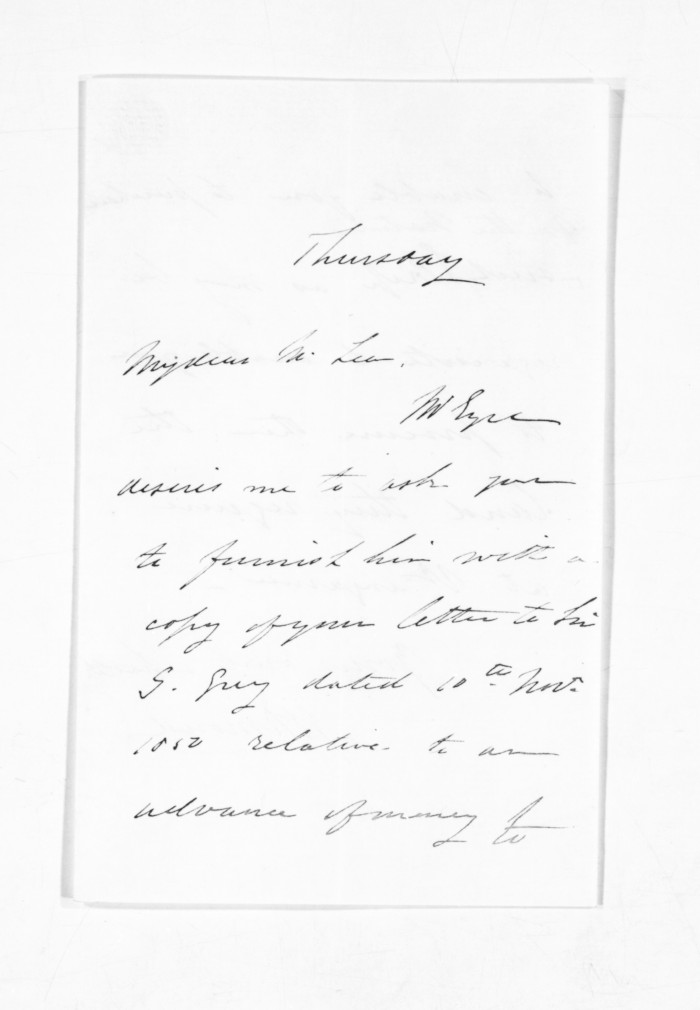 Thursday
My dear Mr. Lean,
Mr Eyre
desires me to ask you
to furnish him with a
copy of your letter to Sir
G. Grey dated 10th Novr.
1850 relative to an
advance of money to